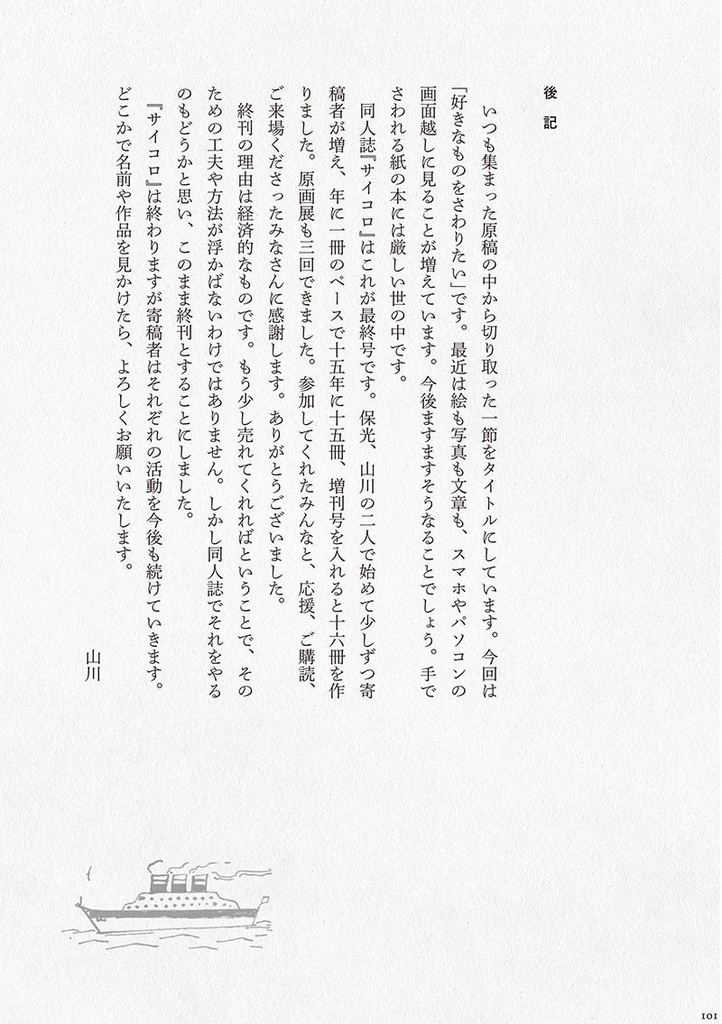 後記
いつも集まった原稿の中から切り取った一節をタイトルにしています。今回は
「好きなものをさわりたい」です。最近は絵も写真も文章も、スマホやパソコンの
画面越しに見ることが増えています。今後ますますそうなることでしょう。手で
さわれる紙の本には厳しい世の中です。
同人誌『サイコロ』はこれが最終号です。保光、山川の二人で始めて少しずつ寄
稿者が増え、年に一冊のペースで十五年に十五冊、増刊号を入れると十六冊を作
りました。原画展も三回できました。参加してくれたみんなと、応援、ご購読、
ご来場くださったみなさんに感謝します。ありがとうございました。
終刊の理由は経済的なものです。もう少し売れてくれればということで、その
ための工夫や方法が浮かばないわけではありません。しかし同人誌でそれをやる
のもどうかと思い、このまま終刊とすることにしました。
『サイコロ』は終わりますが寄稿者はそれぞれの活動を今後も続けていきます。
どこかで名前や作品を見かけたら、よろしくお願いいたします。
山川
101